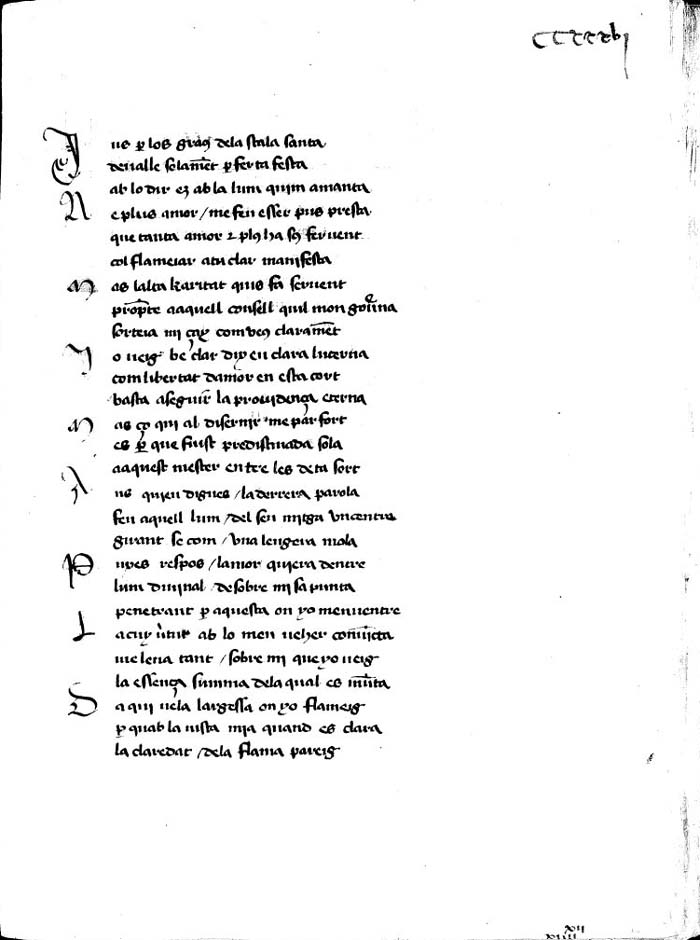 ccccxxxbj
Jus per los graons dela scala santa
deualle solament per ferta festa
ab lo dir e ab la lum quim amanta
Ne plus amor / me feu esser pus presta
que tanta amor e plus ha sus feruent
col flameiar atu clar manifesta
Mas lalta karitat quis fa seruent
propte aaquell consell quil mon gouerna
sorteia mi çay com veus clarament
Jo veig be clar dix en clara lucerna
com libertat damor en esta cort
basta aseguir la prouidença eterna
Mas ço qui al disernir me par fort
es per que fuist predistinada sola
aaquest mester entre les deta sort
Ans quieu digues / la derrera parola
feu aquell lum / del seu mitga vn centre
girant se com / vna leugera mola
Pures respos / lamor quiera dentre
lum diuinal / desobre mi sa punta
penetrant per aquesta on yo menuentre
La cuy virtut ab lo meu veher coniuncta
me leua tant / sobre mi que yo veig
la essença summa dela qual es munta
Daqui vela largessa on yo flameig
per quab la vista mia quand es clara
la claredat / dela flama pareig
xij
xiiij